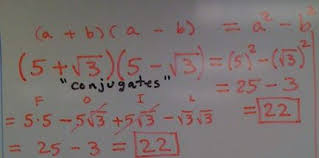 (a + b)(a - b) = a² - b²
(5 + √3)(5 - √3) = (5)² - (√3)²
"conjugates" = 25 - 3
F O I L = 22
= 5·5 - 5√3 + 5√3 - √3√3
= 25 - 3 = 22